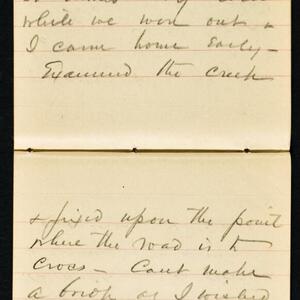 while we were out &
I came home early –
Examined the creek
& fixed upon the point
where the road is to
cross – Cant make
a bridge as I wished